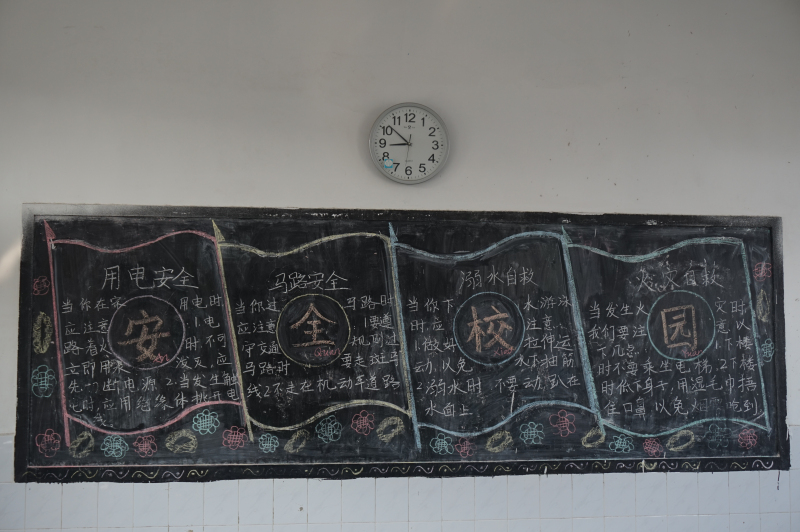 12
1
2
3
4
5
6
7
8
9
10
11
用电安全
当你在家 用电时,
应注意 1.电
路着火 时不可
立即用水 泼灭,应
先 出电源 2.当发生触
电时,应用绝缘体挑开电
线
安
马路安全
当你过 马路时
应注意 1.要遵
守交通 规则过
马路时 要走斑马
线2.不走在机动车道路
全
溺水自救
当你下 水游泳
时,应 注意1.
做好 拉伸运
动,以免 水下抽筋
2.溺水时 不要动,趴在
水面上
校
火灾自救
当发生火 灾时
我们要注 意以
下几点: 1.下楼
时不要乘坐电梯,2.下楼
时低下身子,用湿毛巾捂
住口鼻以免烟雾吃到
园